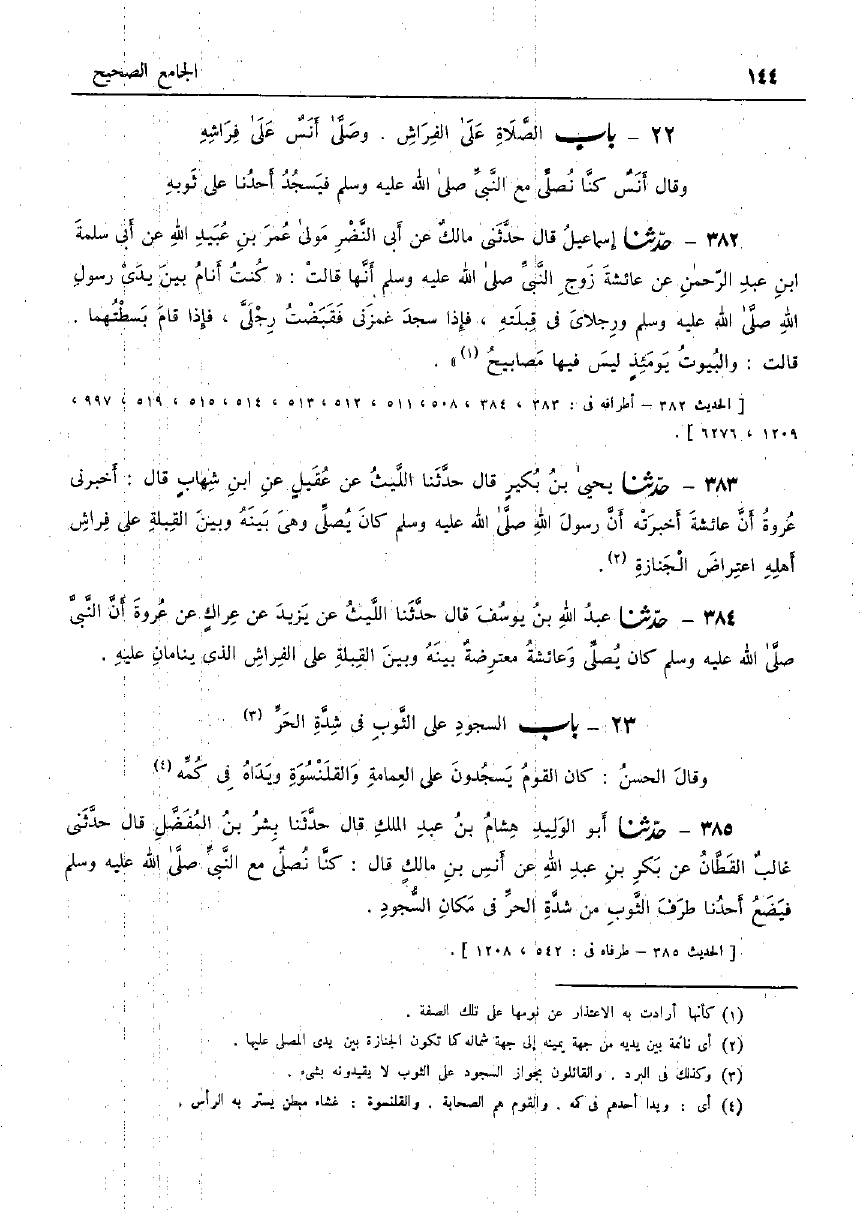 ١٤٤ الجامع الصحيح
٢٢ - باب الصَّلَاةِ عَلَىٰ الفِرَاشِ . وصَلَّىٰ أَنَسٌ عَلَىٰ فِرَاشِهِ
وقال أَنَسٌ كنَّا نُصلِّى مع النَّبيِّ صلىٰ الله عليه وسلم فيَسجُدُ أَحدُنا على ثَوبهِ
٣٨٢ - حدّثنا إسماعيلُ قال حدَّثَنى مالكٌ عن أَبى النَّضْرِ مَولىٰ عُمرَ بنِ عُبَيدِ اللهِ عن أَبى سلمةَ
ابنِ عبدِ الرّحمٰنِ عن عائشةَ زَوجِ النَّبيِّ صلىٰ الله عليه وسلم أَنَّها قالتْ : « كُنتُ أَنامُ بينَ يدَىْ رسولِ
اللهِ صلَّىٰ الله عليه وسلم ورِجلاىَ فى قِبلَتهِ ، فإذا سجدَ غمزَنى فَقَبَضْتُ رِجْلَىَّ ، فإذا قامَ بَسطتُهما .
قالت : والبُيوتُ يَومَئِذٍ ليسَ فيها مَصابيحُ (١)» .
[ الحديث ٣٨٢ - أطرافه فى : ٣٨٣ ، ٣٨٤ ، ٥٠٨ ، ٥١١ ، ٥١٢ ، ٥١٣ ، ٥١٤ ، ٥١٥ ، ٥١٩ ، ٩٩٧ ،
١٢٠٩ ، ٦٢٧٦ ] .
٣٨٣ - حدّثنا يحيىٰ بنُ بُكيرٍ قال حدَّثَنا اللَّيثُ عن عُقَيلٍ عنِ ابنِ شِهابٍ قال : أَخبرنى
عُروةُ أَنَّ عائشةَ أَخبرَته أَنَّ رسولَ اللهِ صلَّىٰ الله عليه وسلم كانَ يُصلِّى وهىَ بَينَهُ وبينَ القِبلةِ على فِراشِ
أَهلِهِ اعتِراضَ الْجَنازةِ (٢).
٣٨٤ - حدّثنا عبدُ اللهِ بنُ يوسُفَ قال حدَّثَنا اللَّيثُ عن يَزيدَ عن عِراكٍ عن عُروةَ أَنَّ النَّبيَّ
صلَّىٰ الله عليه وسلم كان يُصلِّى وَعائشةُ معترِضةٌ بينَهُ وبينَ القِبلةِ على الفِراشِ الذى ينامانِ عليهِ .
٢٣ - باب السجودِ على الثَّوبِ فى شِدَّةِ الحَرِّ (٣)
وقالَ الحسنُ : كان القومُ يَسجُدونَ على العِمامةِ وَالقلَنْسُوَةِ ويَدَاهُ فى كُمِّه (٤)
٣٨٥ - حدّثنا أَبو الوَليدِ هِشامُ بنُ عبدِ الملكِ قال حدَّثَنا بِشرُ بنُ المُفَضَّلِ قال حدَّثَنى
غالبٌ القَطَّانُ عن بَكرِ بنِ عبدِ اللهِ عن أَنَسِ بنِ مالكٍ قال : كنَّا نُصلِّى مع النَّبيِّ صلَّىٰ الله عليه وسلم
فيَضَعُ أَحدُنا طرَفَ الثَّوبِ من شدَّةِ الحرِّ فى مَكانِ السُّجودِ .
[ الحديث ٣٨٥ - طرفاه فى : ٥٤٢ ، ١٢٠٨ ] .
(١) كأنها أرادت به الاعتذار عن نومها على تلك الصفة .
(٢) أى نائمة بين يديه من جهة يمينه إلى جهة شماله كما تكون الجنازة بين يدى المصلى عليها .
(٣) وكذلك فى البرد . والقائلون بجواز السجود على الثوب لا يقيدونه بشىء .
(٤) أى : ويدا أحدهم فى كمه . والقوم هم الصحابة . والقلنسوة : غشاء مبطن يستر به الرأس .